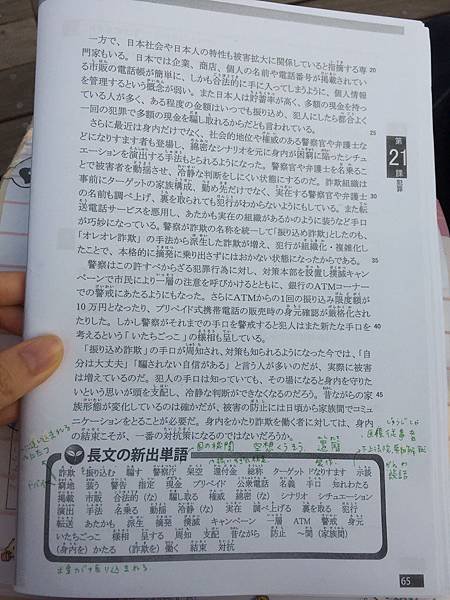 一方で、日本社会や日本人の特性も被害拡大に関係していると指摘する専
門家もいる。日本では企業、商店、個人の名前や電話番号が掲載されてい
る市販の電話帳が簡単に、しかも合法的に手に入ってしまうように、個人情報
を管理するという概念が弱い。また日本人は貯蓄率が高く、多額の現金を持っ
ている人が多く、ある程度の金額はいつでも振り込め、犯人にしたら都合よく
一回の犯罪で多額の現金を騙し取れるからだとも言われている。
さらに最近は身内だけでなく、社会的地位や権威のある警察官や弁護士な
どになりすます者も登場し、綿密なシナリオを元に身内が困窮に陥ったシチュ
エーションを演出する手法もとられるようになった。警察官や弁護士を名乗るこ
とで被害者を動揺させ、冷静な判断をしにくい状態にするのだ。詐欺組織は
事前にターゲットの家族構成、勤め先だけでなく、実在する警察官や弁護士
の名前も調べ上げ、裏を取られても犯行がわからないようにもしている。また転
送電話サービスを悪用し、あたかも実在の組織があるかのように装うなど手口
が巧妙になっている。警察が詐欺の名称を統一して「振り込め詐欺」としたのも、
「オレオレ詐欺」の手法から派生した詐欺が増え、犯行が組織化・複雑化し
たことで、本格的に摘発に乗り出さずにはおかない状態になったからである。
警察はこの許すべからざる犯罪行為に対し、対策本部を設置し撲滅キャン
ペーンで市民により一層の注意を呼びかけるとともに、銀行のATMコーナー
での警戒にあたるようにもなった。さらにATMからの1回の振り込み限度額が
10万円となったり、プリペイド式携帯電話の販売時の身元確認が厳格化され
たりした。しかし警察がそれまでの手口を警戒すると犯人はまた新たな手口を
考えるという「いたちごっこ」の様相も呈している。
「振り込め詐欺」の手口が周知され、対策も知られるようになった今では、「自
分は大丈夫」「騙されない自信がある」と言う人が多いのだが、実際に被害
は増えているのだ。犯人の手口は知っていても、その場になると身内を守りた
いという思いが頭を支配し、冷静な判断ができなくなるのだろう。昔ながらの家
族形態が変化しているのは確かだが、被害の防止には日頃から家族間でコミュ
ニケーションをとることが必要だ。身内をかたり詐欺を働く者に対しては、身内
の結束こそが、一番の対抗策になるのではないだろうか。
20
25
30
35
40
45
第
21
課
犯罪
長文の新出単語
詐欺 振り込む 騙す 警察庁 架空 還付金 総称 ターゲット なりすます 示談
窮地 装う 警告 指定 現金 プリペイド 公衆電話 名義 手口 知れわたる
掲載 市販 合法的(な) 騙し取る 権威 綿密(な) シナリオ シチュエーション
演出 手法 名乗る 動揺 冷静(な) 実在 調べ上げる 裏を取る 犯行
転送 あたかも 派生 摘発 撲滅 キャンペーン 一層 ATM 警戒 身元
いたちごっこ 様相 呈する 周知 支配 昔ながら 防止 ～間(家族間)
(身内を)かたる (詐欺を)働く 結束 対抗
65